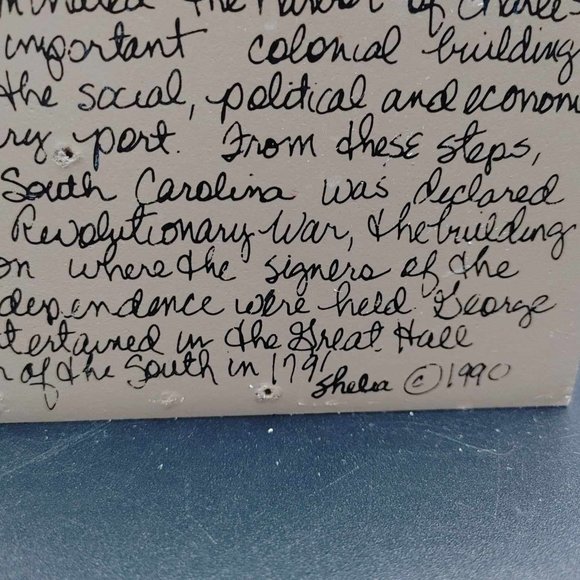 the Harbor of Charles
important colonial building
the social, political and econom
ry port. From these steps,
South Carolina was declared
Revolutionary War, the building
on where the signers of the
dependence were held. George
tertained in the Great Hall
n of the South in 1791
Shelia © 1990